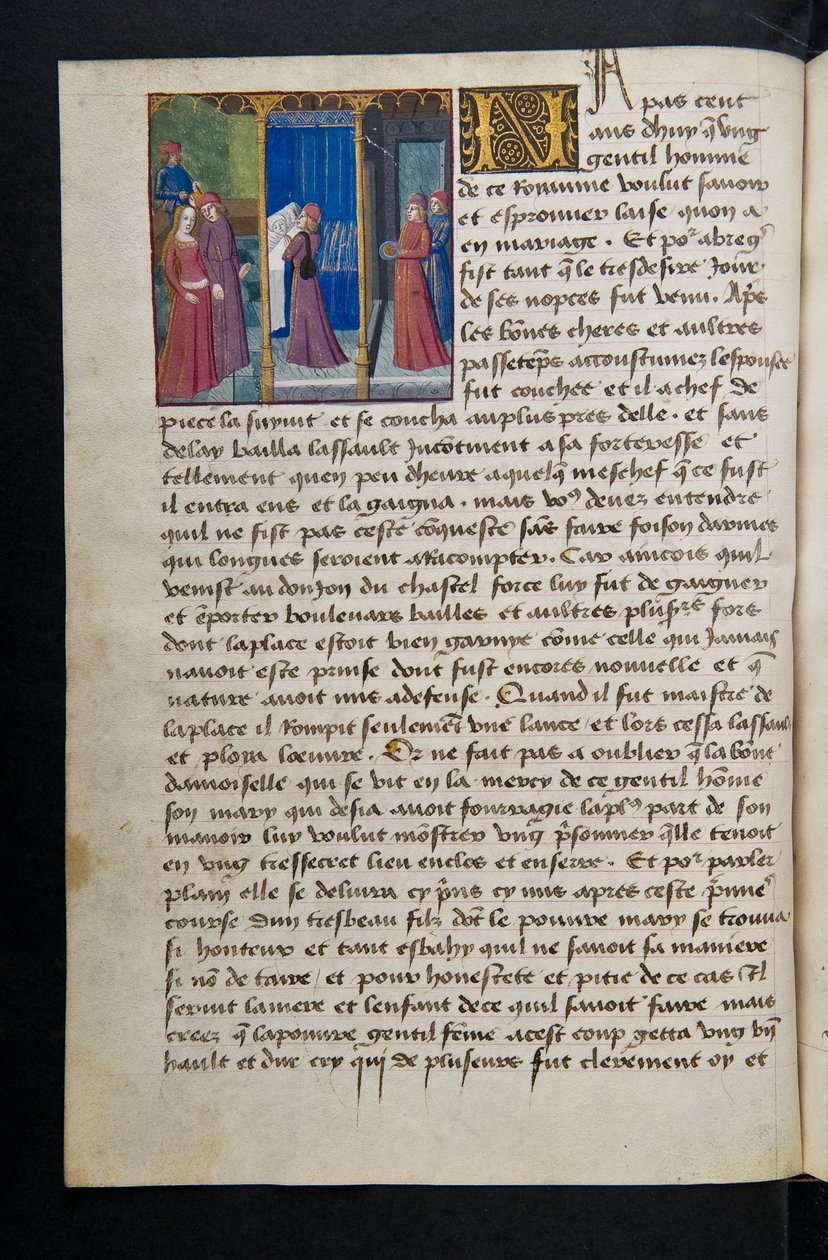 NA pas cent
ans dhuy q̃ vng
gentil homme
de ce Royaume voulut sauoir
et esprouuer laise quon a
en mariage . Et poʳ abregʳ
fist tant q̃ le tresdesire Jour
de ses nopces fut venu . Ap̃s
les bõnes cheres et aultres
passetẽps accoustumez lespousee
fut couchee et il a chef de
piece la suyuit et se coucha au plus pres delle . et sans
delay bailla lassault Incõtinent a sa forteresse et
tellement quen peu dheure a quelq̃ meschef q̃ ce fust
il entra ens et la gaigna . mais voꝰ deuez entendre
quil ne fist pas ceste cõqueste sãs faire foison darmes
qui longues seroient a Racompter . Car aincois quil
venist au donJon du chastel force luy fut de gaigner
et ẽporter bouleuars bailles et aultres plusʳˢ fors
dont la place estoit bien garnye cõme celle qui Jamais
nauoit este prinse dont fust encores nouuelle et q̃
nature auoit mis a defense . Quand il fut maistre de
la place il Rompit seulemẽt vne lance / et lors cessa lassault
et ploya loeuure . Or ne fait pas a oublier q̃ la bõne
damoiselle qui se vit en la mercy de ce gentil hõme
son mary qui desia auoit fourragie la plꝰ part de son
manoir luy voulut mõstrer vng p̃sonnier q̃lle tenoit
en vng tressecret lieu enclos et enserre . Et poʳ parler
plain elle se deliura cy prins cy mis apres ceste p̃mieʳ
course dun tresbeau filz dõt le pouure mary se trouua
si honteux et tant esbahy quil ne sauoit sa maniere
si nõ de taire / et pour honestete et pitie de ce cas Il
seruit la mere et lenfant de ce quil sauoit faire mais
creez q̃ la pouure gentil fẽme a cest coup getta vng bñ
hault et dur cry qui de pluseurs fut clerement oy et